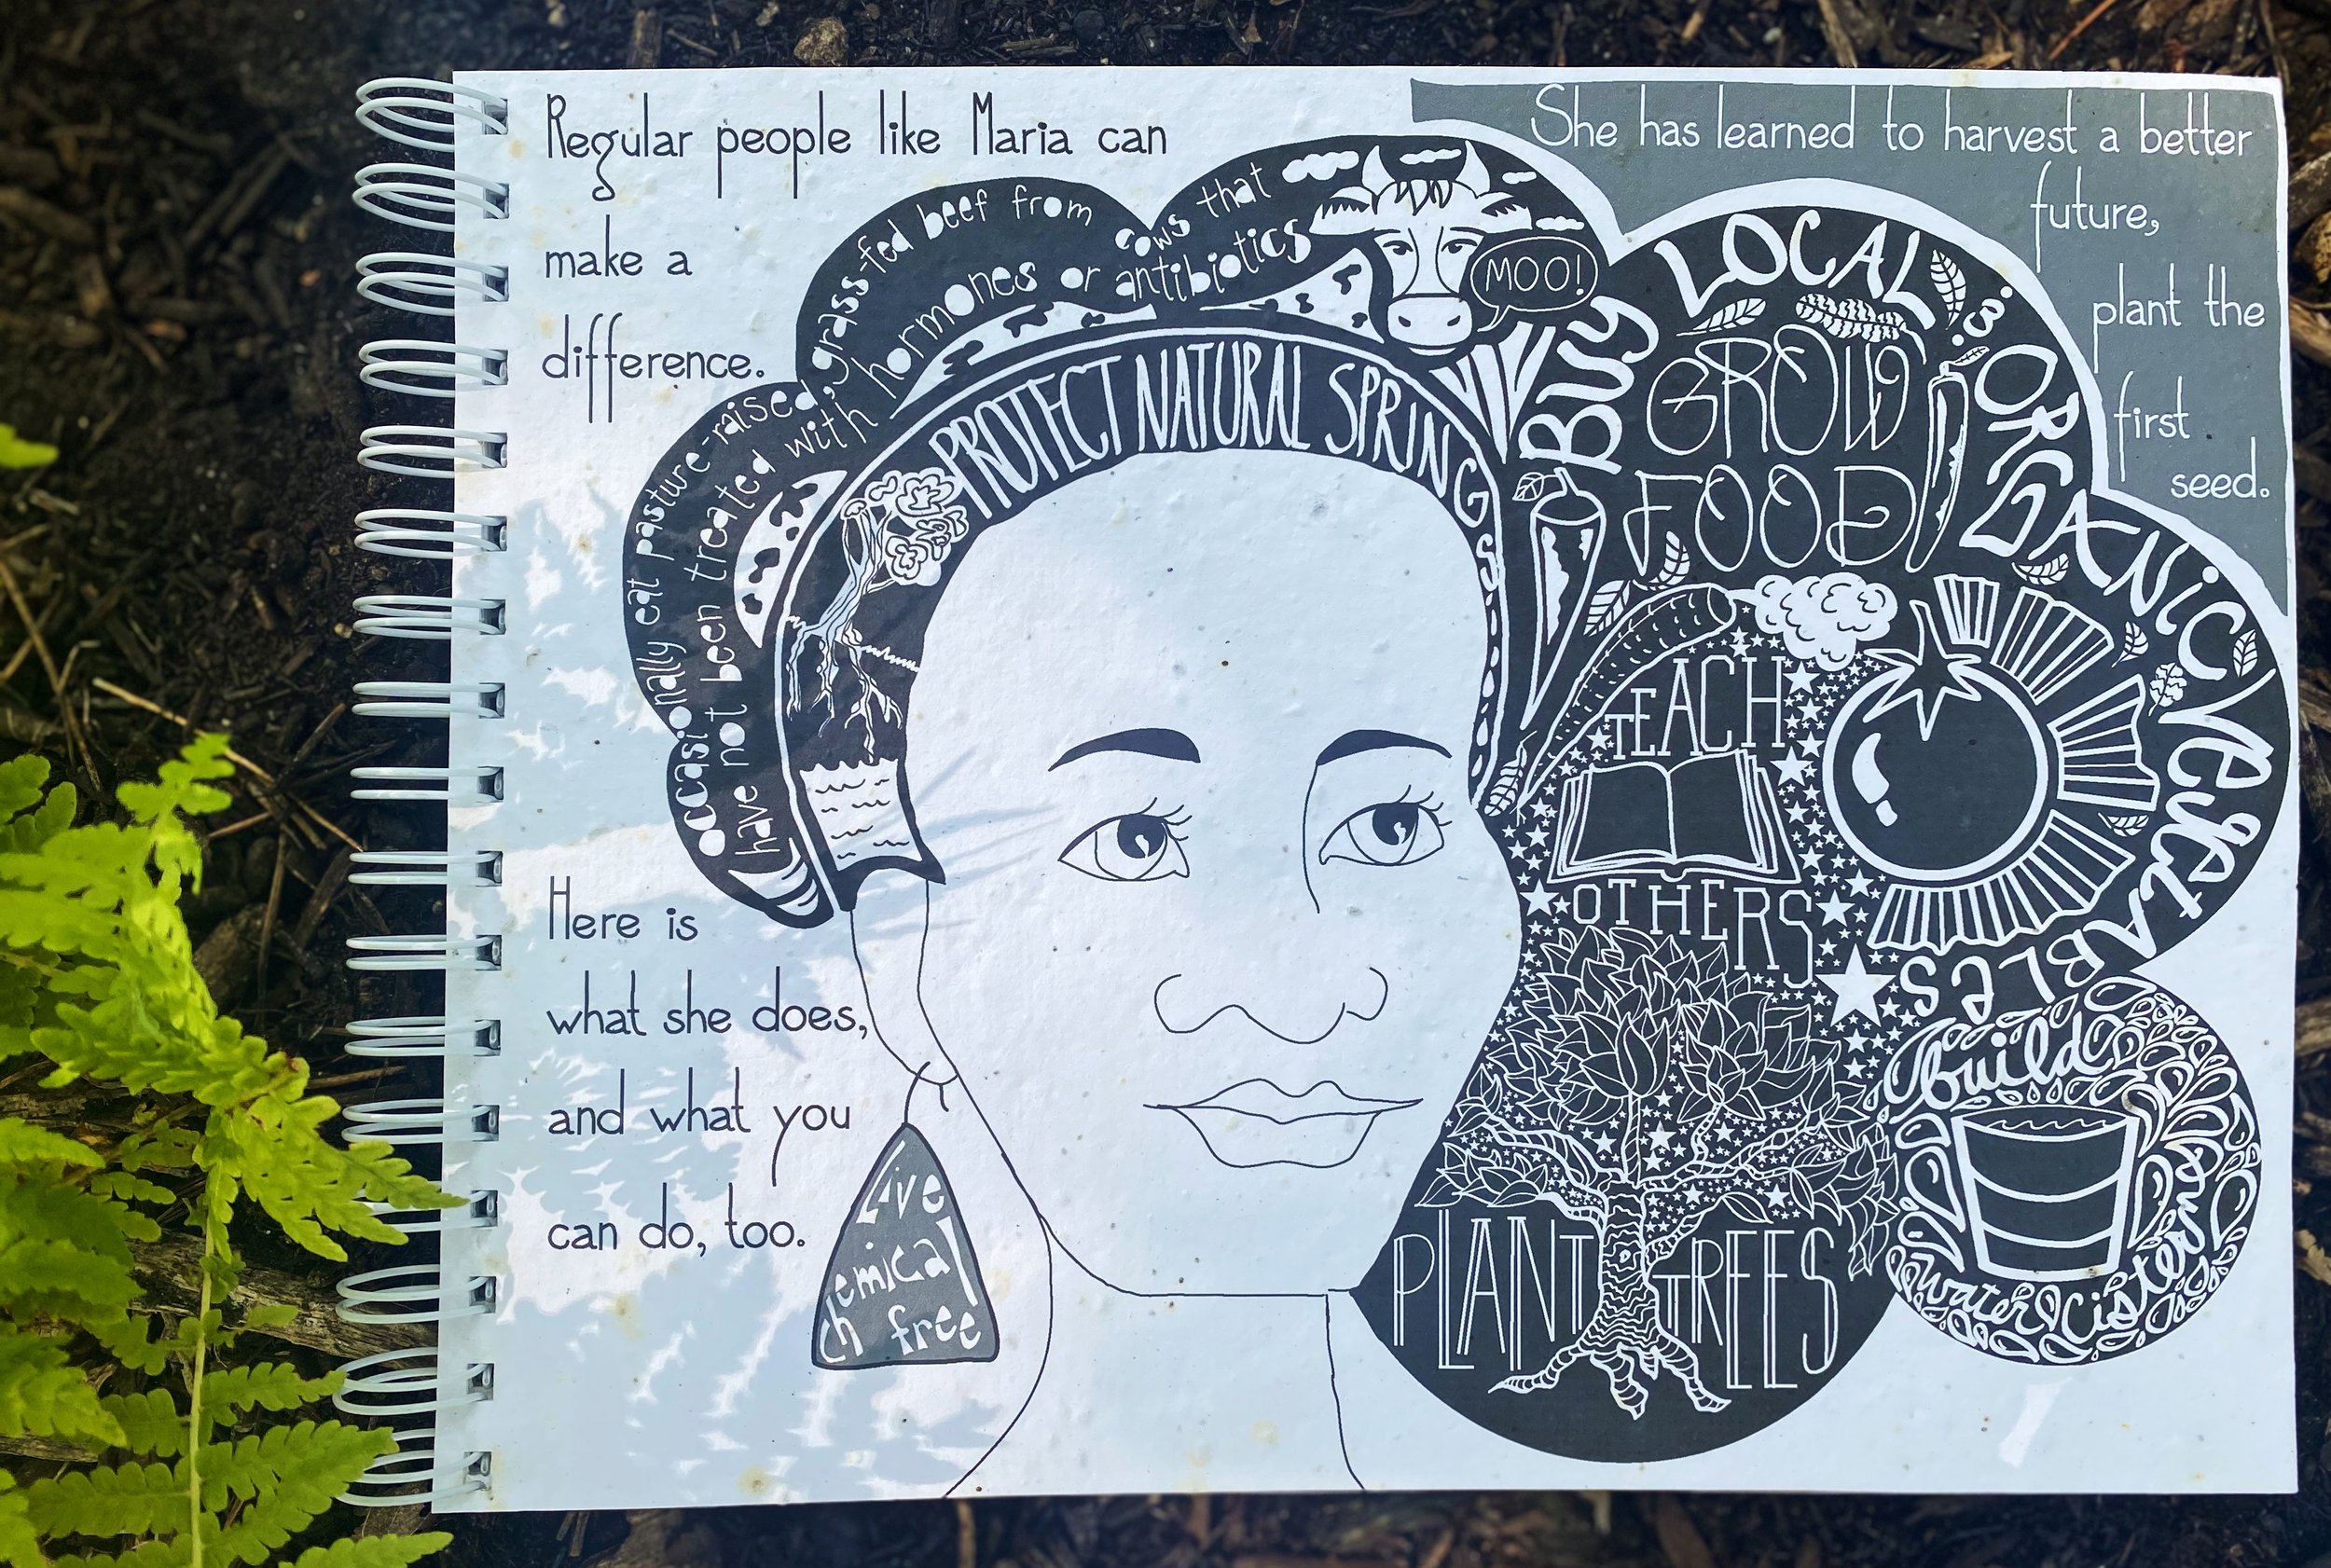 Regular people like Maria can
make a
difference.
She has learned to harvest a better
future,
plant the
first
seed.
occasionally eat pasture-raised, grass-fed beef from cows that
have not been treated with hormones or antibiotics
MOO!
PROTECT NATURAL SPRINGS
BUY LOCAL & ORGANIC VEGETABLES
GROW
FOOD
TEACH
OTHERS
PLANT TREES
build
your
water cistern
Here is
what she does,
and what you
can do, too.
Live
chemical
free